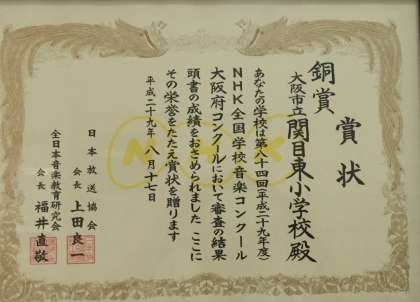 賞状
銅賞
大阪市立関目東小学校殿
あなたの学校は第八十四回(平成二十九年度)
NHK全国学校音楽コンクール
大阪府コンクールにおいて審査の結果
頭書の成績をおさめられました ここに
その栄誉をたたえ賞状を贈ります
平成二十九年 八月十七日
日本放送協会
会長 上田良一
全日本音楽教育研究会
会長 福井直敬